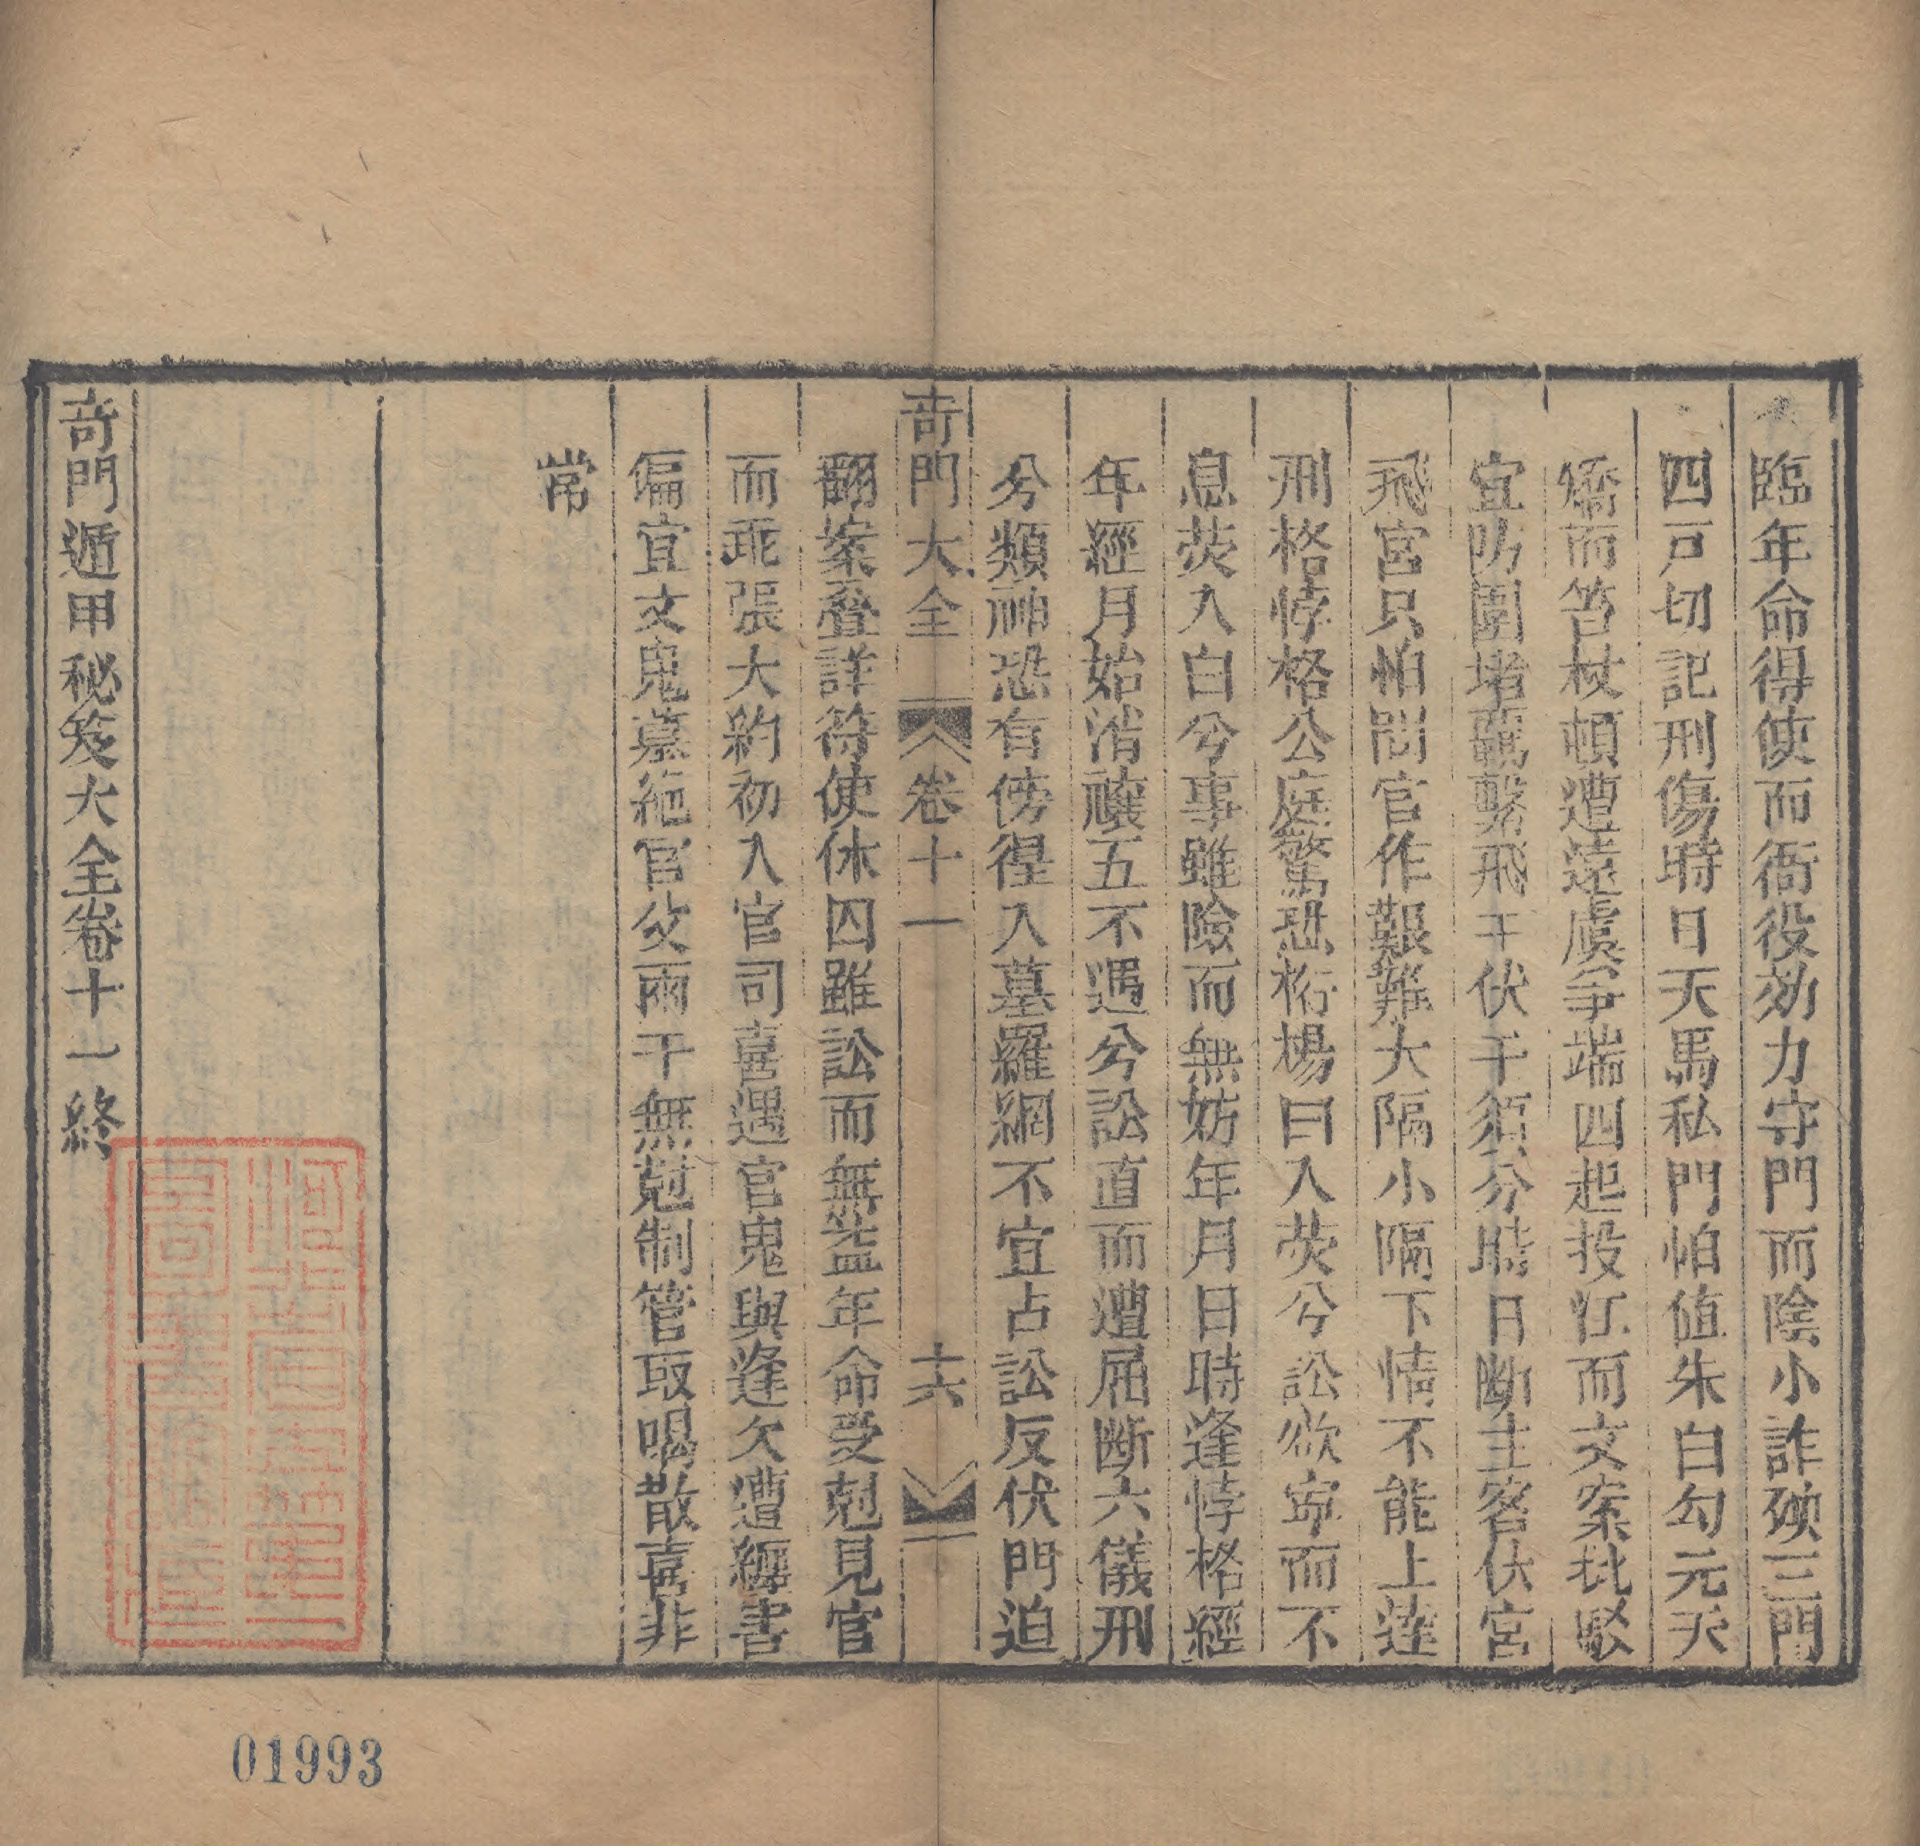 臨年命得使而衙役効力守門而陰小詐殃三門
四戸切記刑傷時日天馬私門怕值朱白勾元天
矯而笞杖頓遭遠虞爭端四起投江而文案批駁
宜防圍堵羈繫飛干伏干須分時日斷主客伏宮
飛宮只怕問官作艱難大隔小隔下情不能上達
刑格悖格公庭驚恐桁楊曰入荧兮訟欲寧而不
息荧入白兮事雖險而無妨年月日時逢悖格經
年經月始消禳五不遇兮訟直而遭屈斷六儀刑
兮類神恐有傍徨入墓羅網不宜占訟反伏門迫
奇門大全 卷十一 十六
翻案疊詳符使休囚雖訟而無益年命受尅見官
而乖張大約初入官司喜遇官鬼與逢欠遭纒書
偏宜文鬼墓絶官父兩干無尅制管取喝散喜非
常
奇門遁甲秘笈大全卷十一終
01993